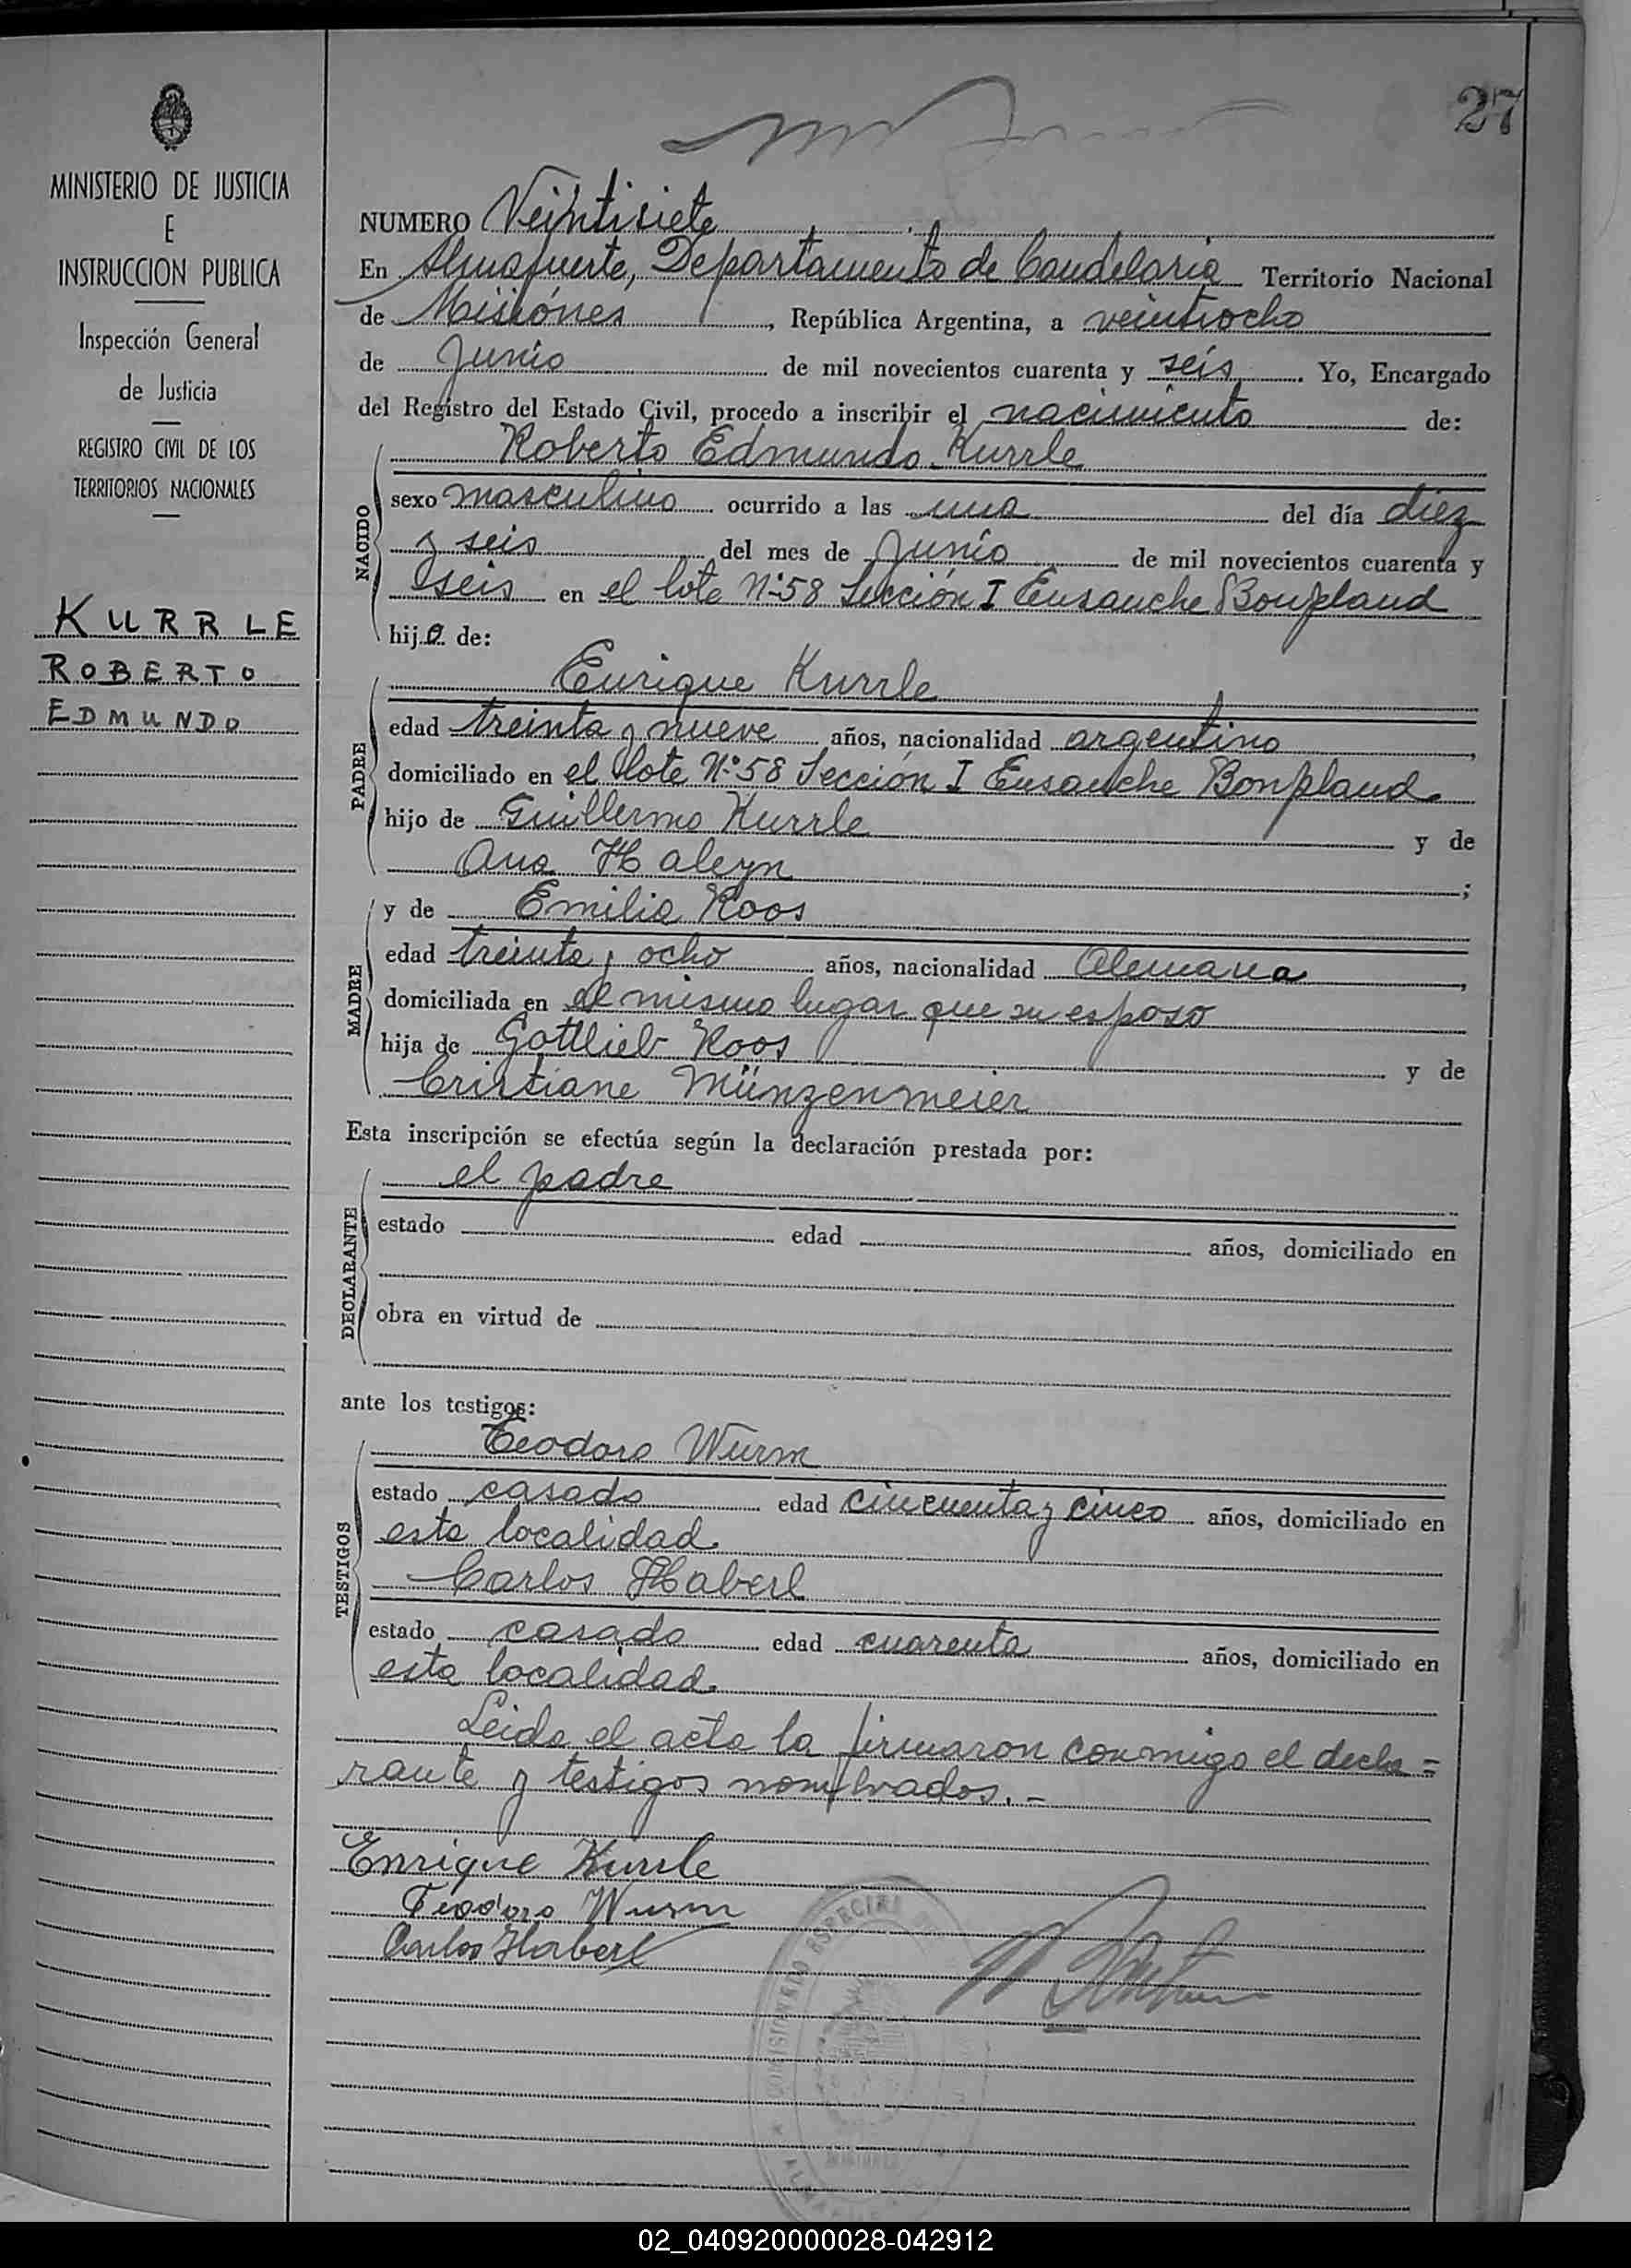 27
MINISTERIO DE JUSTICIA
E
INSTRUCCION PUBLICA
Inspección General
de Justicia
REGISTRO CIVIL DE LOS
TERRITORIOS NACIONALES
KURRLE
ROBERTO
EDMUNDO
NUMERO Veintisiete
En Almafuerte, Departamento de Candelaria Territorio Nacional
de Misiónes, República Argentina, a veintiocho
de Junio de mil novecientos cuarenta y seis. Yo, Encargado
del Registro del Estado Civil, procedo a inscribir el nacimiento de:
NACIDO
Roberto Edmundo Kurrle
sexo masculino ocurrido a las una del día diez
y seis del mes de Junio de mil novecientos cuarenta y
seis en el lote Nº58 Sección I Ensanche Bonpland
hijo de:
PADRE
Enrique Kurrle
edad treinta y nueve años, nacionalidad argentino,
domiciliado en el lote Nº58 Sección I Ensanche Bonpland
hijo de Guillermo Kurrle y de
Ana Haleyn;
MADRE
y de Emilia Koos
edad treinta y ocho años, nacionalidad Alemana,
domiciliada en el mismo lugar que su esposo
hija de Gottlieb Koos y de
Cristiane Münzenmeier
Esta inscripción se efectúa según la declaración prestada por:
DECLARANTE
el padre
estado edad años, domiciliado en
obra en virtud de
ante los testigos:
TESTIGOS
Teodoro Wurm
estado casado edad cincuenta y cinco años, domiciliado en
esta localidad.
Carlos Haberl
estado casado edad cuarenta años, domiciliado en
esta localidad.
Leida el acta la firmaron conmigo el decla=
rante y testigos nombrados.-
Enrique Kurrle
Teodoro Wurm
Carlos Haberl
02_040920000028-042912